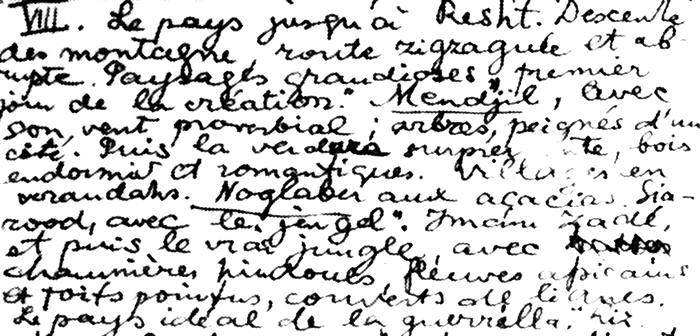 VIII. Le pays jusqu'à Resht. Descente
des montagne, route zigzaguée et ab-
rupte. Paysages grandioses "premier
jour de la création." Mendjil, avec
son vent proverbial ; arbres, peignés d'un
côté. Puis la verdure, bois
endormis et romantiques. Villages en
verandahs. Noglaber aux acacias. Sia-
rood, avec le "jengel". Imam Zadé,
et puis le vrai jungle, avec
chaumières hindoues, fleuves africains
et toits pointus, couverts de
Le pays idéal de la guerrilla. "Riz